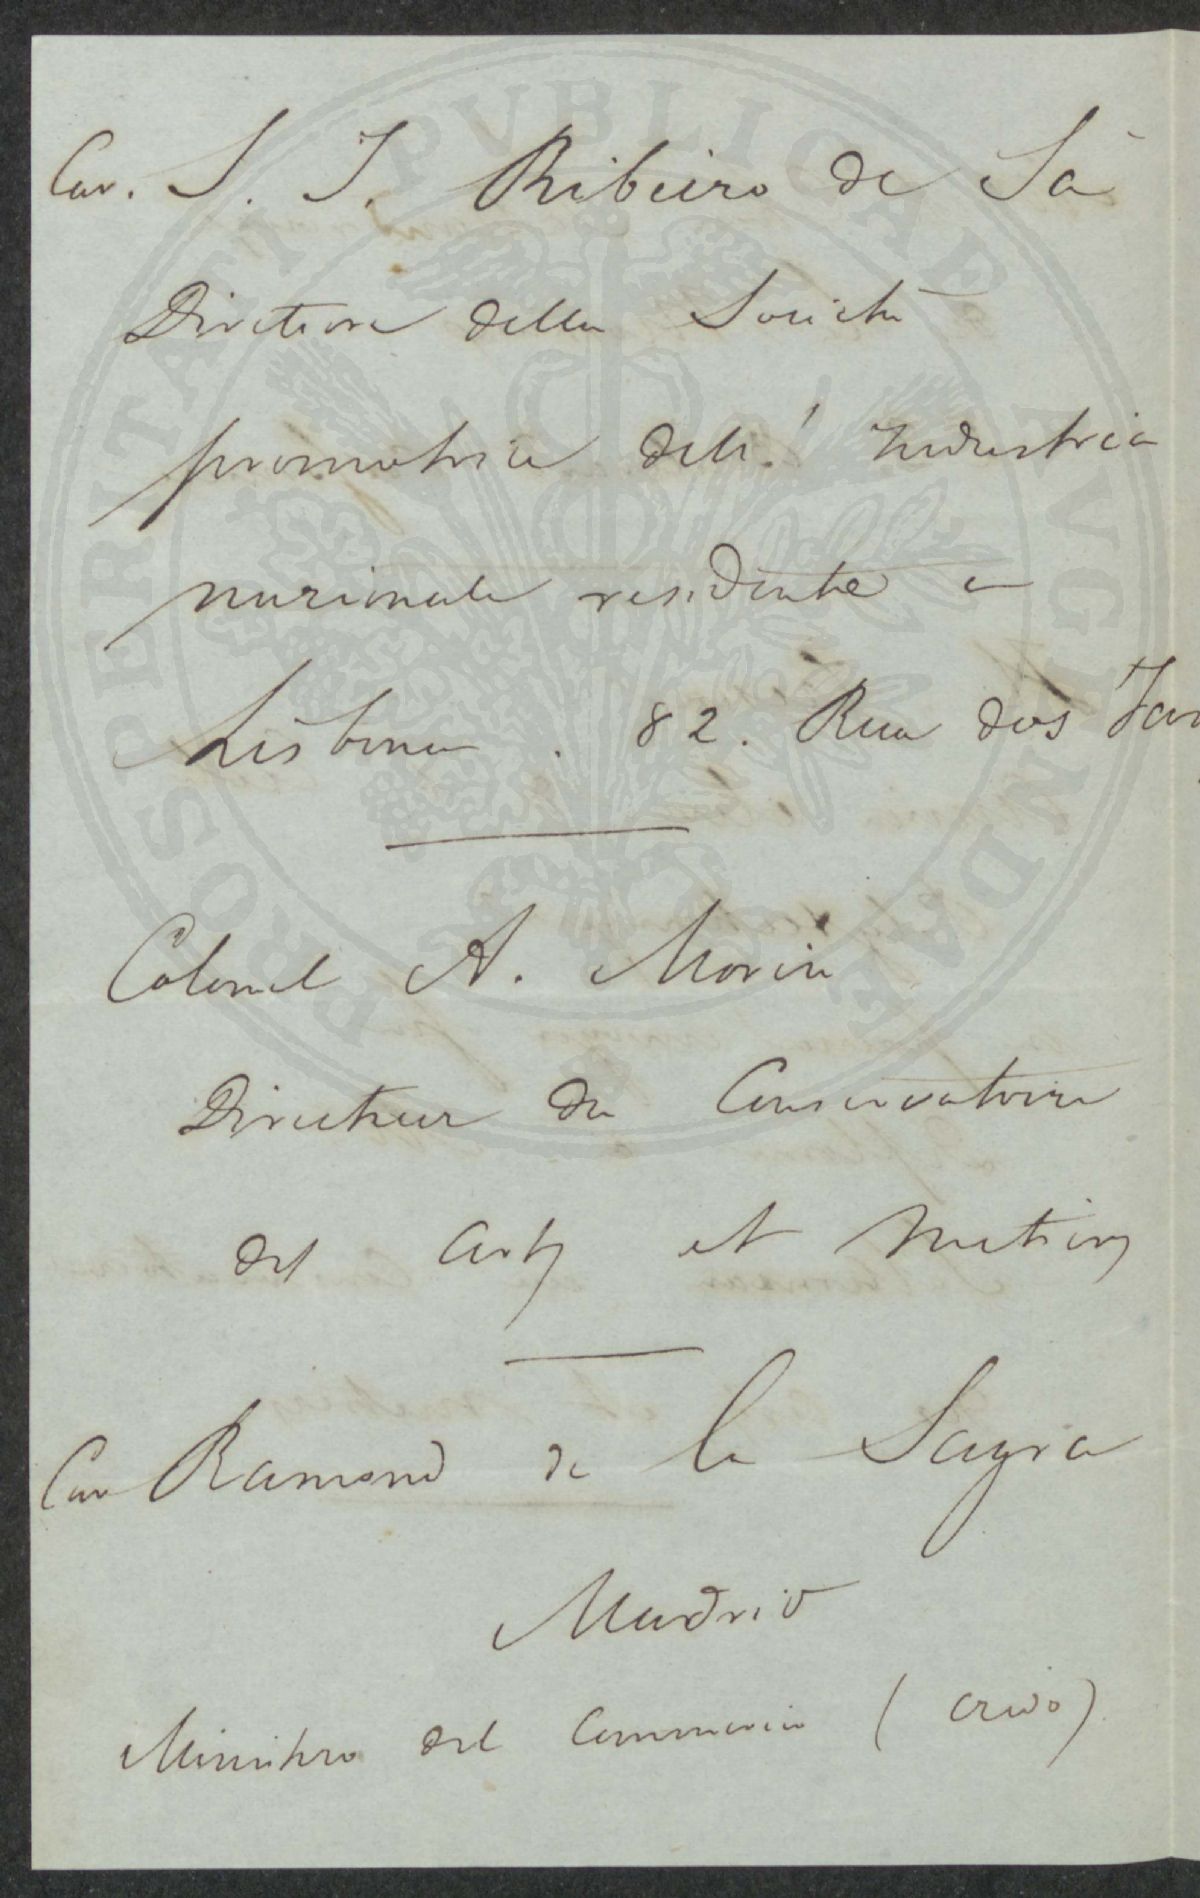 Cav. S. J. Ribeiro de Sá
Direttore della Società
promotrice dell' Industria
nazionale residente a
Lisbona . 82. Rua dos
Colonel A. Morin
Directeur du Conservatoire
des Arts et Metiers
Cav Ramond de la Sagra
Madrid
Ministro del Commercio ( credo )
PROSPERITATI PVBLICAE AVGENDAE